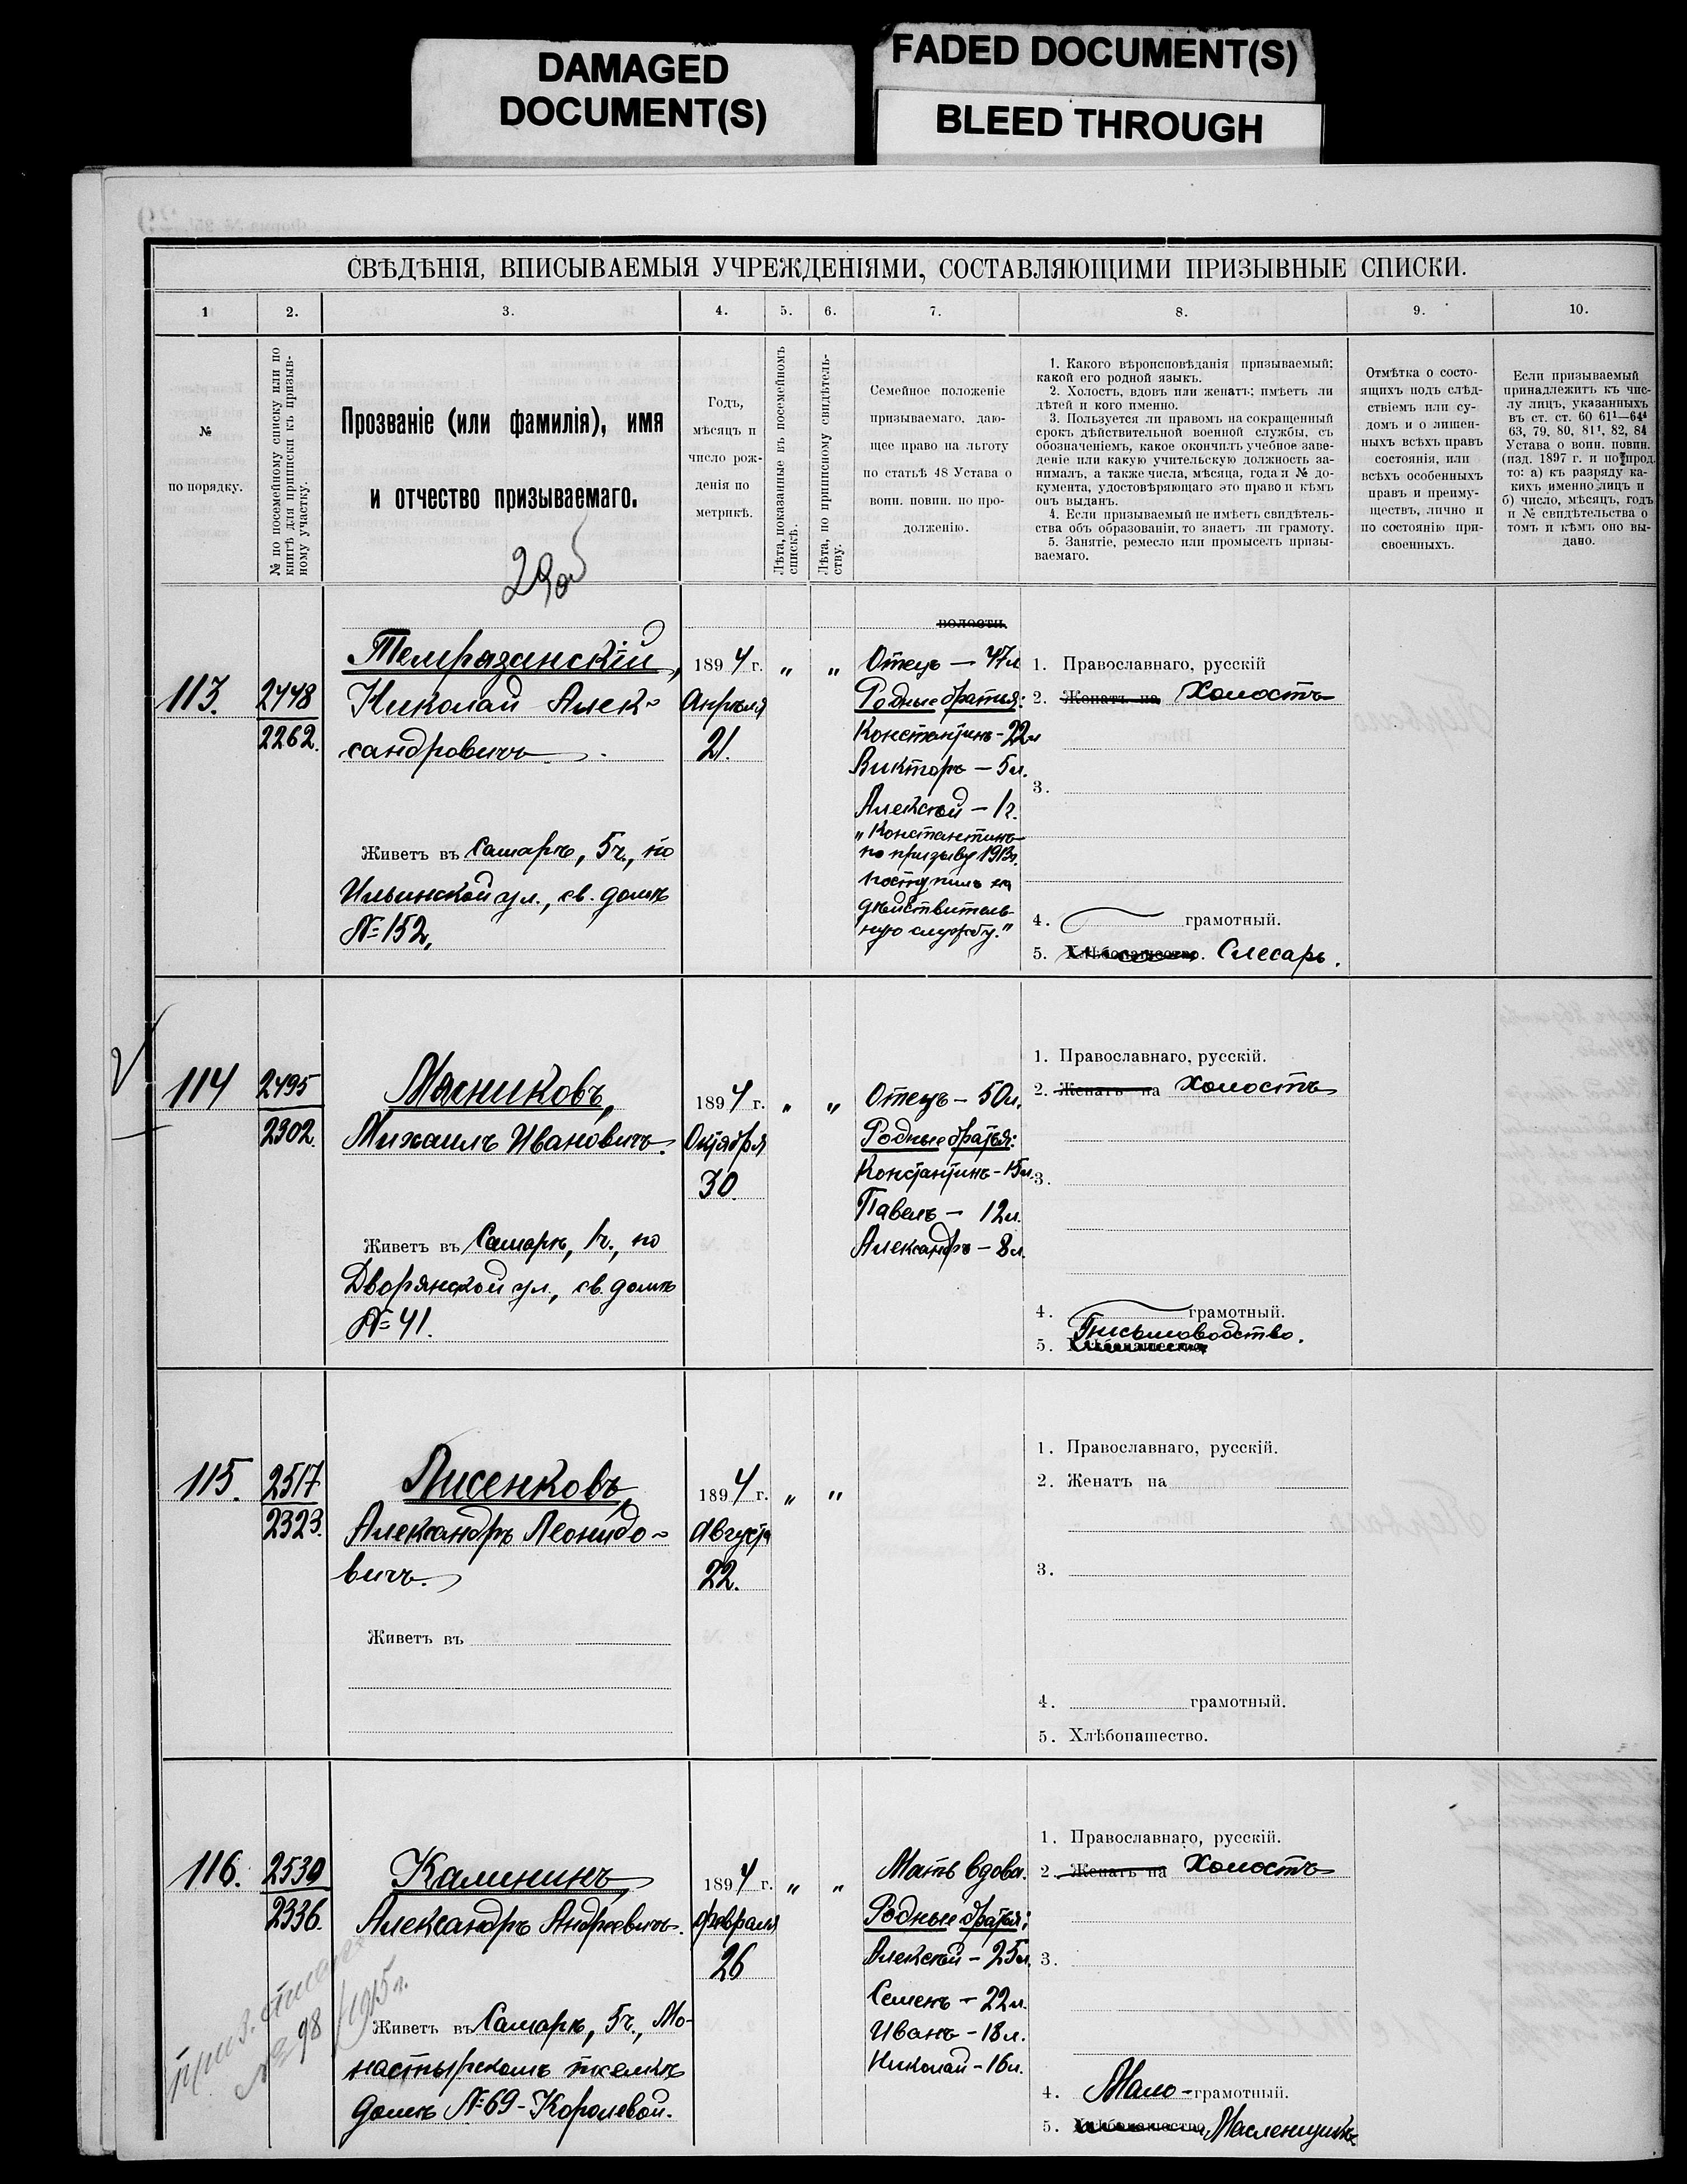 DAMAGED
DOCUMENT(S)
FADED DOCUMENT(S)
BLEED THROUGH
СВѢДѢНІЯ, ВПИСЫВАЕМЫЯ УЧРЕЖДЕНІЯМИ, СОСТАВЛЯЮЩИМИ ПРИЗЫВНЫЕ СПИСКИ.
1
2.
3.
4.
5.
6.
7.
8.
9.
10.
№
по порядку.
№ по посемейному списку или по
книгѣ для приписки къ призыв-
ному участку.
Прозваніе (или фамилія), имя
и отчество призываемаго.
29об
Годъ,
мѣсяцъ и
число рож-
денія по
метрикѣ.
Лѣта, показанныe въ посемейномъ
спискѣ.
Лѣта, по приписному свидѣтель-
ству.
Семейное положеніе
призываемаго, даю-
щее право на льготу
по статьѣ 48 Устава о
воин. повин. по про-
долженію.
1. Какого вѣроисповѣданія призываемый;
какой его родной языкъ.
2. Холостъ, вдовъ или женатъ; имѣетъ ли
дѣтей и кого именно.
3. Пользуется ли правомъ на сокращенный
срокъ дѣйствительной военной службы, съ
обозначеніемъ, какое окончилъ учебное заве-
деніе или какую учительскую должность за-
нималъ, а также числа, мѣсяца, года и № до-
кумента, удостовѣряющаго это право и кѣмъ
онъ выданъ.
4. Если призываемый не имѣетъ свидѣтель-
ства объ образованіи, то знаетъ ли грамоту.
5. Занятіе, ремесло или промыселъ призы-
ваемаго.
Отмѣтка о состо-
ящихъ подъ слѣд-
ствіемъ или су-
домъ и о лишен-
ныхъ всѣхъ правъ
состоянія, или
всѣхъ особенныхъ
правъ и преиму-
ществъ, лично и
по состоянію при-
своенныхъ.
Если призываемый
принадлежитъ къ чис-
лу лицъ, указанныхъ
въ ст. ст. 60 61¹—64⁴
63, 79, 80, 81¹, 82, 84
Устава о воин. повин.
(изд. 1897 г. и по прод.
то: а) къ разряду ка-
кихъ именно лицъ и
б) число, мѣсяцъ, годъ
и № свидѣтельства о
томъ и кѣмъ оно вы-
дано.
113.
2448
2262.
Темрязанскій,
Николай Алек-
сандровичъ.
Живетъ въ Самарѣ, 5ч., по
Ильинской ул., св. домѣ
№ 152,
1894 г.
Апрѣля
21.
"
"
волости.
Отецъ — 47л
Родные братья:
Константинъ - 22л
Викторъ — 5л.
Алексѣй — 1г.
"Константинъ
по призыву 1913г.
поступилъ на
дѣйствитель-
ную службу."
1. Православнаго, русскій
2. Женатъ на Холостъ
3.
4. грамотный.
5. Хлѣбопашество. Слесарь.
114
2495
2302.
Мясниковъ,
Михаилъ Ивановичъ.
Живетъ въ Самарѣ, 1ч., по
Дворянской ул., св. домѣ
№ 41.
1894 г.
Октября
30
"
"
Отецъ — 50л.
Родные братья:
Константинъ - 15л.
Павелъ — 12л.
Александръ — 8л.
1. Православнаго, русскій.
2. Женатъ на холостъ
3.
4. грамотный.
Письмоводство.
5. Хлѣбопашество
115.
2517
2323.
Лисенковъ,
Александръ Леонидо-
вичъ.
Живетъ въ
1894 г.
Августа
22.
"
"
1. Православнаго, русскій.
2. Женатъ на
3.
4. грамотный.
5. Хлѣбопашество.
116.
2530
2336.
Калининъ,
Александръ Андреевичъ.
Живетъ въ Самарѣ, 5ч., Мо-
настырскомъ поселкѣ
домѣ № 69 - Королевой.
1894 г.
февраля
26
"
"
Мать вдова.
Родные братья:
Алексѣй — 25л.
Семенъ — 22л.
Иванъ — 18л.
Николай — 16л.
1. Православнаго, русскій.
2. Женатъ на Холостъ
3.
4. Мало-грамотный.
5. Хлѣбопашество, Масленщикъ
№ 98 1915г.